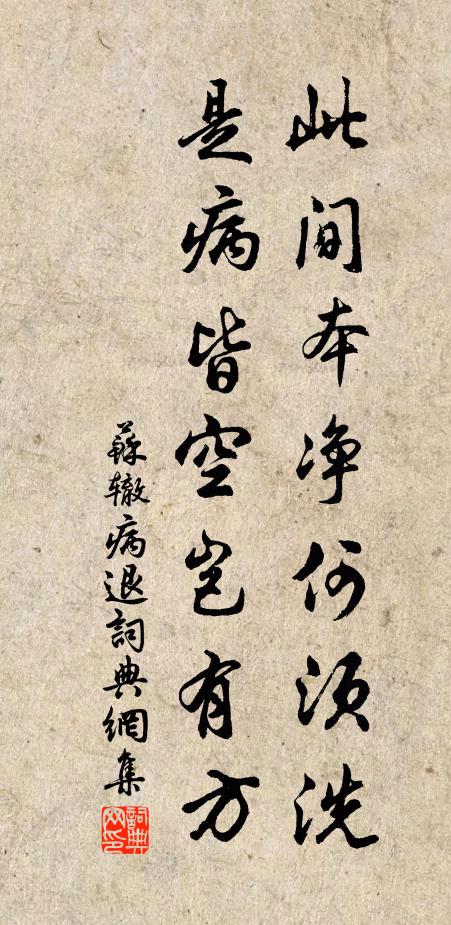 此间本净何须洗
是病皆空岂有方
蘇辙病退詞典網集
詞典
网印